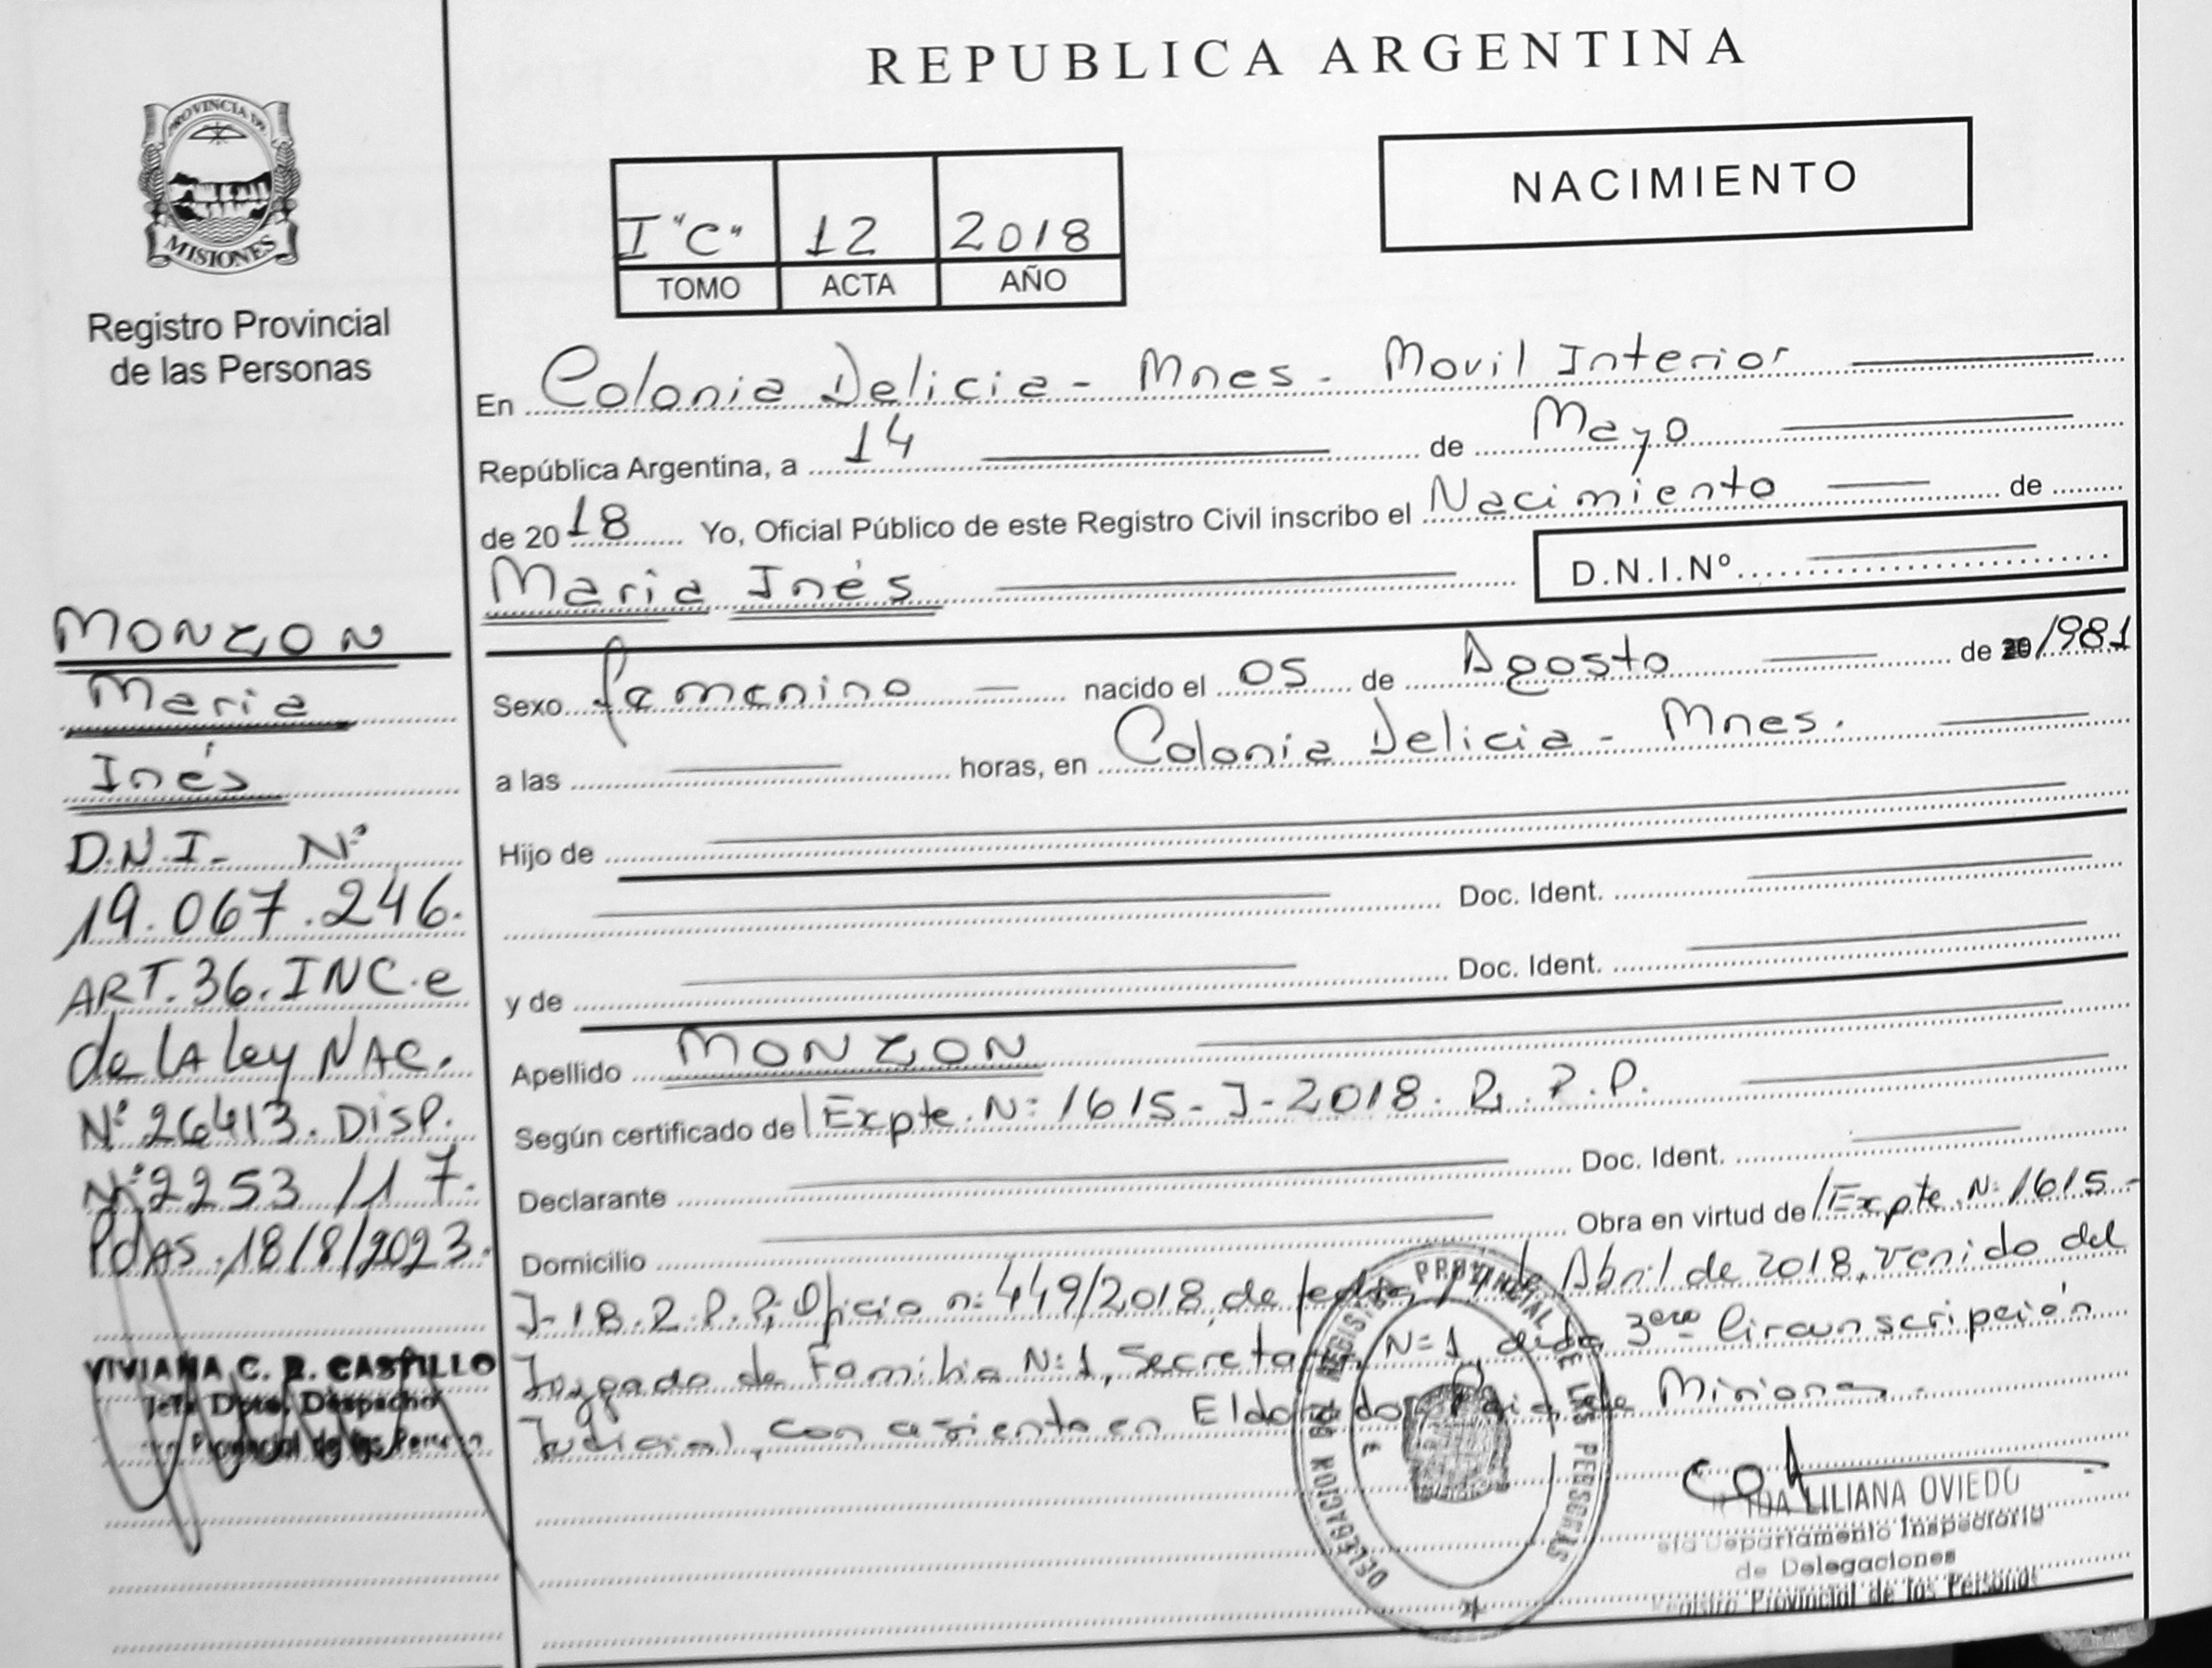 REPUBLICA ARGENTINA
PROVINCIA DE
MISIONES
Registro Provincial
de las Personas
NACIMIENTO
I "C" 12 2018
TOMO ACTA AÑO
En Colonia Delicia - Mnes - Movil Interior
República Argentina, a 14 de Mayo
de 2018 Yo, Oficial Público de este Registro Civil inscribo el Nacimiento de
Maria Inés D.N.I.Nº
Sexo femenino nacido el 05 de Agosto de 1981
a las horas, en Colonia Delicia - Mnes.
Hijo de
Doc. Ident.
y de Doc. Ident.
Apellido MONZON
Según certificado de Expte. N: 1615-J-2018. R. P. P.
Declarante Doc. Ident.
Domicilio Obra en virtud de Expte. N: 1615-
J-18. R. P. P; Oficio n: 449/2018, de fecha Abril de 2018, venido del
Juzgado de Familia N:1, Secretaria N=1 de la 3era Circunscripción
Judicial, con asiento en Eldorado, de Misiones.
MONZON
Maria
Inés
D.N.I- Nº
19.067.246.
ART.36.INC.e
de LA Ley NAC.
Nº 26413. DISP.
Nº 2253/17.
PDAS.18/8/2023.
VIVIANA C. R. CASTILLO
Jefa Dpto. Despacho
Provincial de las Person
DELEGACION REGISTRO PROVINCIAL DE LAS PERSONAS
LILIANA OVIEDO
Departamento Inspectoria
de Delegaciones
Registro Provincial de las Personas